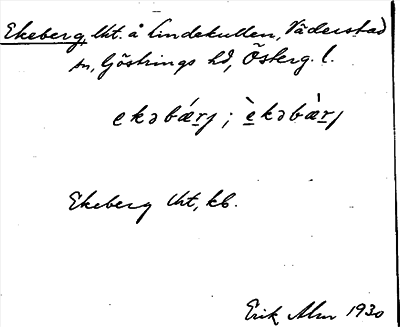 Ekeberg, lht. å Lindekullen, Väderstad
sn, Göstrings hd, Österg. l.
ekəbǽrɟ; èkəbæ̀rɟ
Ekeberg lht, kb.
Erik Alm 1930